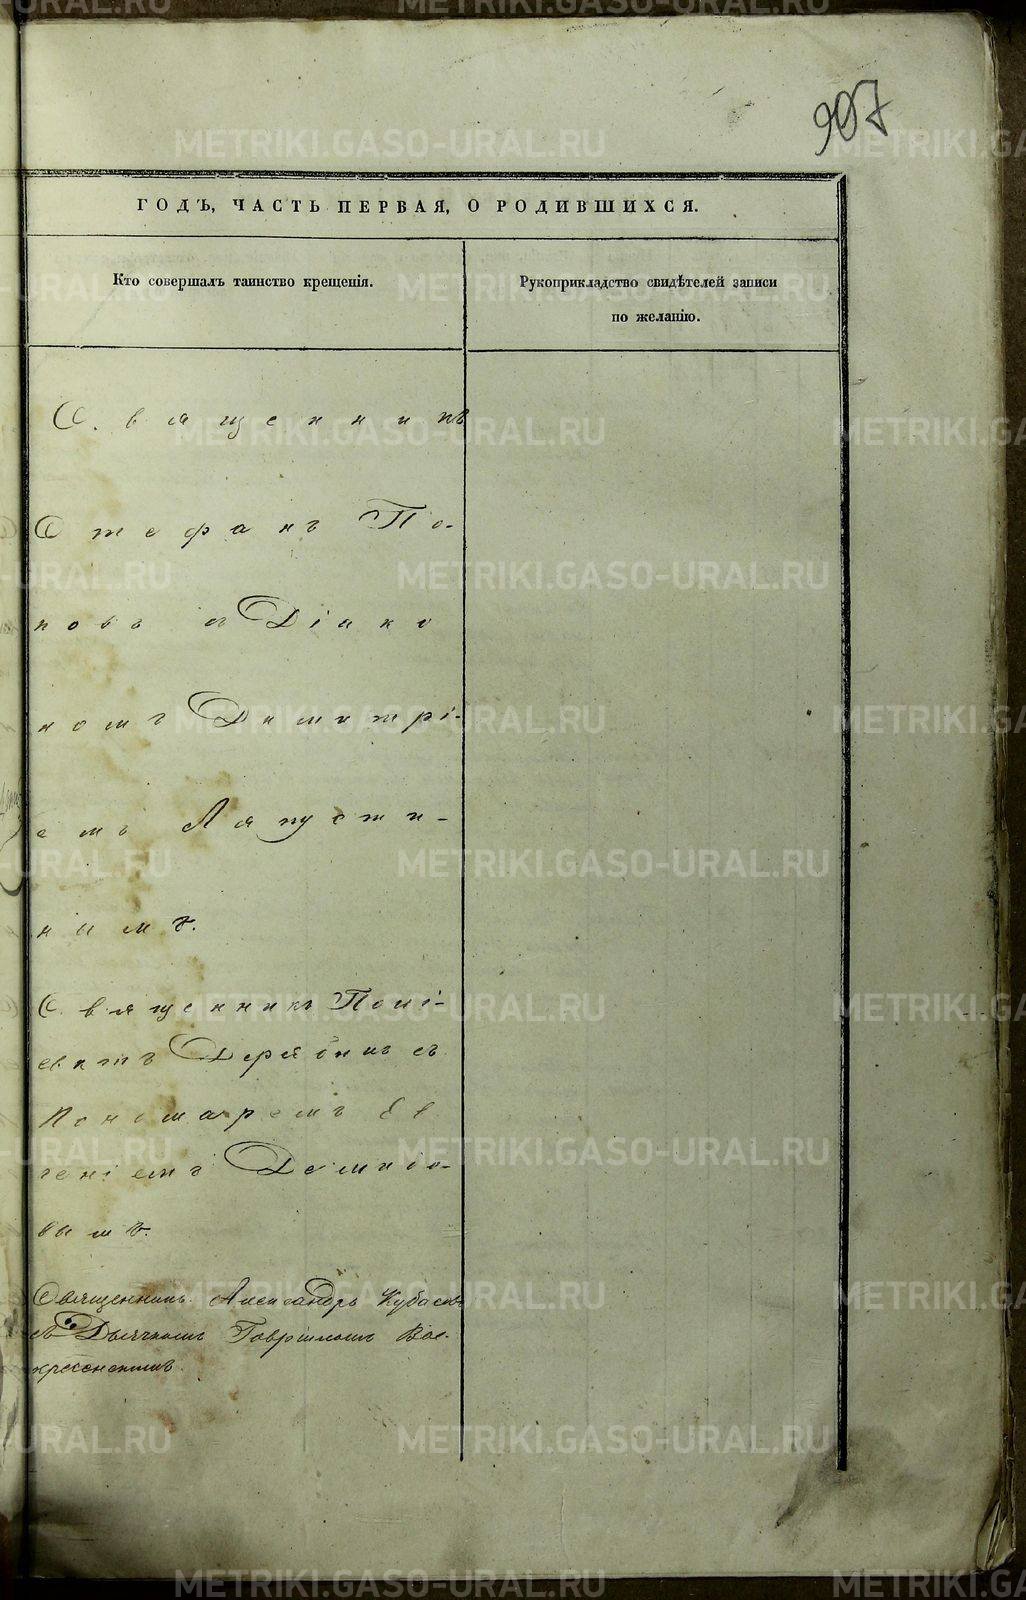 907
ГОДЪ, ЧАСТЬ ПЕРВАЯ, О РОДИВШИХСЯ.
Кто совершалъ таинство крещенія.
Рукоприкладство свидѣтелей записи
по желанію.
Священникъ
Стефанъ По-
повъ съ Діако
номъ Димитрі-
емъ Ляпусти-
нымъ.
Священникъ
Дерябинъ съ
Пономаремъ Ев
геніемъ Демидо-
вымъ.
Священникъ Александръ Кубасовъ
съ Дьячкомъ Гавріиломъ Вос-
кресенскимъ.
METRIKI.GASO-URAL.RU